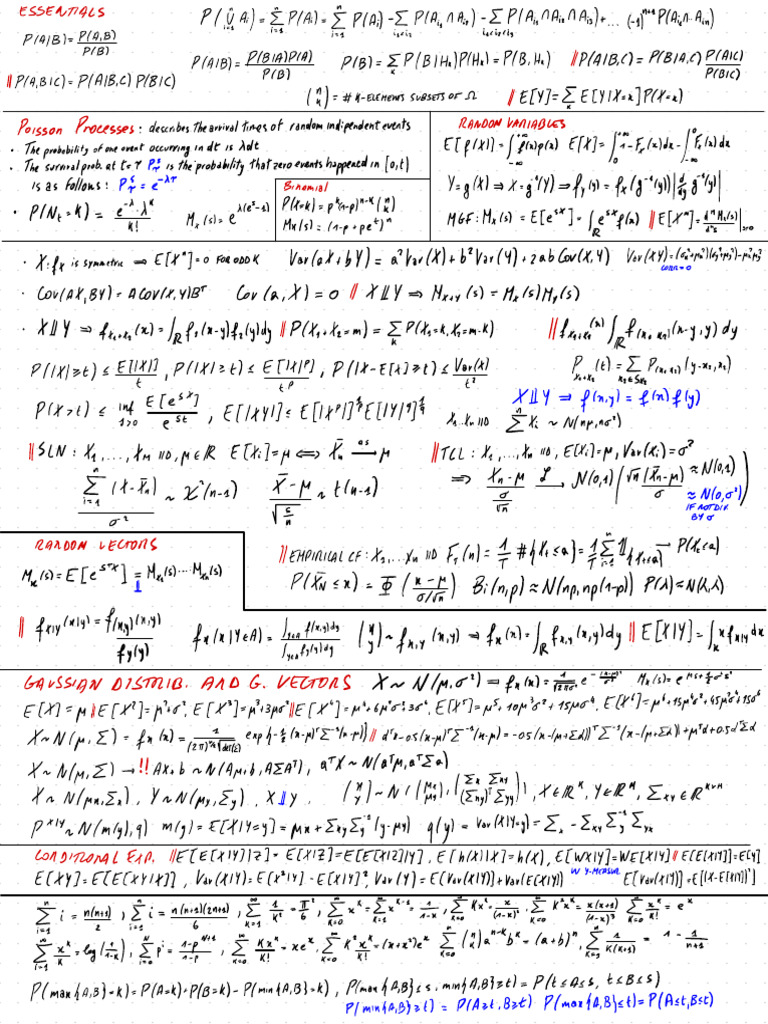 ESSENTIALS
P(⋃Ai) = ∑P(Ai) = ∑P(Ai) - ∑P(Ai₁∩Ai₂) - ∑P(Ai₁∩Ai₂∩Ai₃) + ... (-1)ⁿ⁺¹P(Ai₁∩..Ain)
P(A|B) = P(A,B)/P(B)
P(A|B) = P(B|A)P(A)/P(B) P(B) = ∑P(B|Hk)P(Hk) = P(B,Hk) ||P(A|B,C) = P(B|A,C) P(A|C)/P(B|C)
||P(A,B|C) = P(A|B,C) P(B|C)
(n k) = # K-ELEMENTS SUBSETS OF Ω ||E[Y] = ∑E[Y|X=x]P(X=x)
POISSON PROCESSES: describes the arrival times of random independent events
• The probability of one event occurring in dt is λdt
• The survival prob. at t=τ Pτˢ is the probability that zero events happened in [0,t)
is as follows: Pτˢ = e^-λτ
• P(Nt=k) = e^-λ·λ^k / k! Mx(s) = e^λ(e^s-1)
Binomial
P(X=k) = p^k(1-p)^n-k (n k)
Mx(s) = (1-p+pe^t)^n
RANDOM VARIABLES
E[f(X)] = ∫f(x)p(x) E[X] = ∫1-Fx(x)dx - ∫Fx(x)dx
Y=g(X) ⇒ X=g⁻¹(Y) ⇒ fy(y) = fx(g⁻¹(y))|d/dy g⁻¹(y)|
MGF: Mx(s) = E[e^sX] = ∫e^sx f(x) ||E[Xⁿ] = dⁿMx(s)/dⁿs |s=0
• X: fx is symmetric ⇒ E[Xⁿ]=0 FOR ODD K Var(aX+bY) = a²Var(X) + b²Var(Y) + 2abCov(X,Y) Var(XY) = (σx²+μx²)(σy²+μy²)-μx²μy²
corr=0
• Cov(AX,BY) = ACov(X,Y)Bᵀ Cov(a,X) = 0 || X⫫Y ⇒ Mx+y(s) = Mx(s)My(s)
• X⫫Y ⇒ fx₁+x₂(x) = ∫f₁(x-y)f₂(y)dy ||P(X₁+X₂=m) = ∑P(X₁=k,X₂=m-k) ||fx₁+x₂(x)∫f(x₁,x₂)(x-y,y)dy
P(|X|≥t) ≤ E[|X|]/t, P(|X|≥t) ≤ E[|X|^p]/t^p, P(|X-E[x]|≥t) ≤ Var(X)/t² P x₁+x₂(t) = ∑P(x₁,x₂)(y-x₂,x₂)
X⫫Y ⇒ f(x,y) = f(x)f(y)
P(X>t) ≤ inf E[e^sX]/e^st, E[|XY|] ≤ E[|X|^p]^1/p E[|Y|^q]^1/q X₁..Xn IID ∑Xi ~ N(nμ,nσ²)
||SLN: X₁,...,Xn IID, μ∈ℝ E[Xi]=μ ⟺ X̄n →as μ ||TCL: X₁,...,Xn IID, E[Xi]=μ, Var(Xi)=σ²
∑(X-X̄n)/σ² ~ χ²(n-1) X̄-μ / √s/n ~ t(n-1) ⇒ X̄n-μ / σ/√n →L N(0,1) (√n(X̄n-μ)/σ ≈N(0,1)
≈N(0,σ²)
IF NOT DIV
BY σ
RANDOM VECTORS
||EMPIRICAL CF: X₁,..Xn IID FT(a) = 1/T #{Xt≤a} = 1/T ∑𝟙{Xt≤a} → P(Xt≤a)
Mx(s) = E[e^sᵀX] = Mx₁(s)····Mxn(s)
⫫
P(X̄N≤x) = Φ(x-μ / σ/√n) Bi(n,p)≈N(np,np(1-p)) P(λ)≈N(λ,λ)
||fx|y(x|y) = f(x,y)(x,y)/fy(y) fx(x|Y∈A) = ∫f(x,y)dy / ∫fy(y)dy (x y) ~ fx,y(x,y) ⇒ fx(x) = ∫fx,y(x,y)dy ||E[X|Y] = ∫x fx|y dx
GAUSSIAN DISTRIB. AND G. VECTORS X~N(μ,σ²) ⇒ fx(x) = 1/√2πσ² e^- Mx(s) = e^μs+½σ²s²
E[X]=μ ||E[X²]=μ²+σ², E[X³]=μ³+3μσ² ||E[X⁴]=μ⁴+6μ²σ²+3σ⁴, E[X⁵]=μ⁵, 10μ³σ²+15μσ⁴, E[X⁶]=μ⁶+15μ⁴σ²+45μ²σ⁴+15σ⁶
X~N(μ,Σ) = fx(x) = 1/(2π)^k/2 √det(Σ) exp{-½(x-μ)ᵀΣ⁻¹(x-μ)} || dᵀx-0.5(x-μ)ᵀΣ⁻¹(x-μ) = -0.5(x-(μ+Σd))ᵀΣ⁻¹(x-(μ+Σd))+μᵀd+0.5dᵀΣd
X~N(μ,Σ) → !! AX+b ~ N(Aμ+b, AΣAᵀ), aᵀX ~ N(aᵀμ, aᵀΣa)
X~N(μx,Σx), Y~N(μy,Σy), X⫫Y (x y) ~ N((μx μy), (Σx Σxy Σxyᵀ Σyy)), X∈ℝᴷ, Y∈ℝᴹ, Σxy∈ℝᴷˣᴹ
P x|y ~ N(m(y),q) m(y) = E[X|Y=y] = μx+ΣxyΣy⁻¹(y-μy) q(y) = Var(X|Y=y) = Σx - ΣxyΣy⁻¹Σyx
CONDITIONAL EXP. ||E[E[X|Y]|Z] = E[X|Z] = E[E[X|Z]|Y], E[h(X)|X] = h(X), E[WX|Y] = WE[X|Y] ||E[E[X|Y]] = E[y]
E[XY] = E[E[XY|X]], Var(X|Y) = E[X²|Y] - E[X|Y]², Var(Y) = E[Var(X|Y)] + Var(E(X|Y) W Y-MEASUR E[Var(X|Y)] = E[(X-E[X|Y])²]
∑i = n(n+1)/2, ∑i = n(n+1)(2n+1)/6, ∑1/k² = π²/6, ∑x^k = ∑x^k-1 = 1/1-x, ∑kx^k = x/(1-x)², ∑k²x^k = x(x+1)/(1-x)³ ∑x^k/k! = e^x
∑x^k/k = log(1/1-x), ∑p^i = 1-p^n+1/1-p, ∑kx^k/k! = xe^x, ∑k²x^k/k! = (x+x²)e^x ∑(n k)a^n-k b^k = (a+b)^n, ∑1/k(k+1) = 1 - 1/n+1
P(max{A,B}=k) = P(A=k)+P(B=k)-P(min{A,B}=k), P(max{A,B}≤s, min{A,B}≥t) = P(t≤A≤s, t≤B≤s)
P(min{A,B}≥t) = P(A≥t,B≥t) P(max{A,B}≤t) = P(A≤t,B≤t)